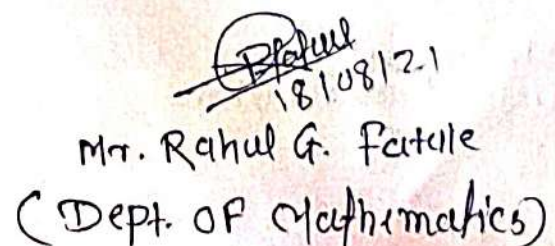 18/08/21
Mr. Rahul G. Fatale
(Dept. OF Mathematics)